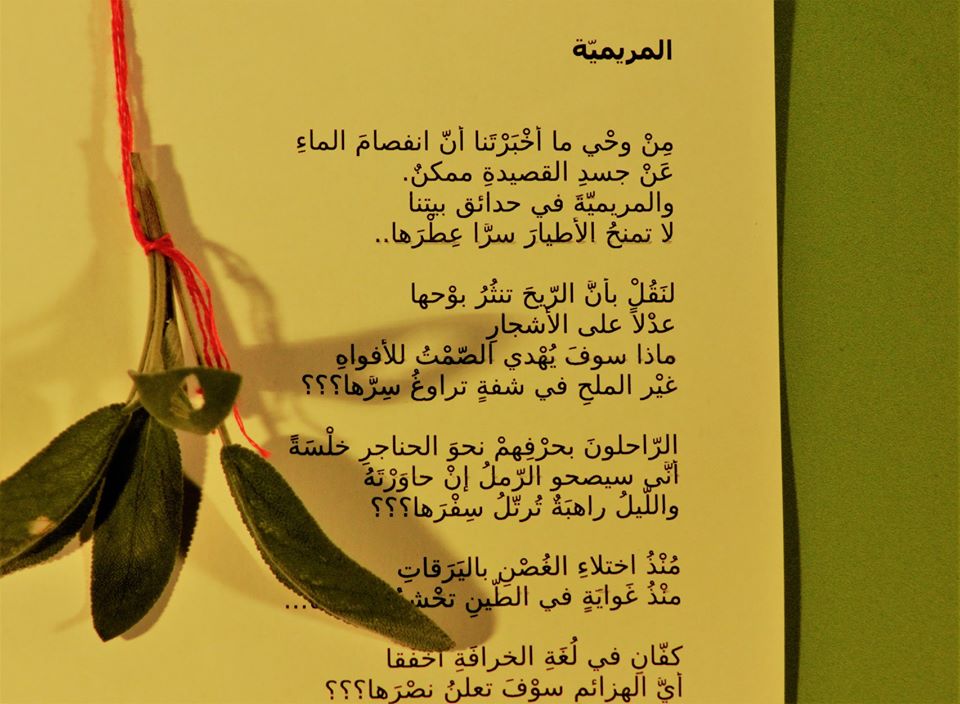 المريميّة
مِنْ وحْي ما أخْبَرْتَنا أنّ انفصامَ الماءِ
عَنْ جسدِ القصيدةِ ممكنٌ.
والمريميّةَ في حدائق بيتنا
لا تمنحُ الأطيارَ سرَّا عِطْرَها..
لنَقُلْ بأنَّ الرّيحَ تنثُرُ بوْحها
عدْلاً على الأشجارِ
ماذا سوفَ يُهْدي الصّمْتُ للأفواهِ
غيْر الملحِ في شفةٍ تراوغُ سِرَّها؟؟؟
الرّاحلونَ بحرْفِهمْ نحوَ الحناجرِ خلْسَةً
أنّى سيصحو الرّملُ إنْ حاوَرْتَهُ
واللّيلُ راهبَةٌ تُرتّلُ سِفْرَها؟؟؟
مُنْذُ اختلاءِ الغُصْنِ باليَرَقاتِ
منْذُ غَوايَةٍ في الطّينِ ...
كفّانِ في لُغَةِ الخرافَةِ أخفقا
أيُّ الهزائم سوْفَ تعلنُ نصْرَها؟؟؟